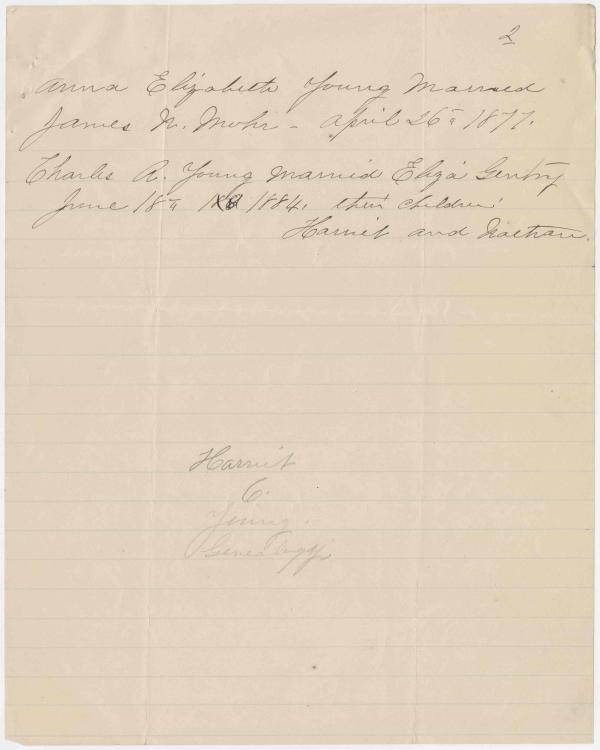 2
Anna Elizabeth Young Married
James M. Mohr - April 26th 1877.
Charles A. Young Married Eliza Gentry
June 18th 1884, their children:
Harriet and Nathan.
Harriet
C.
Young.
Genealogy